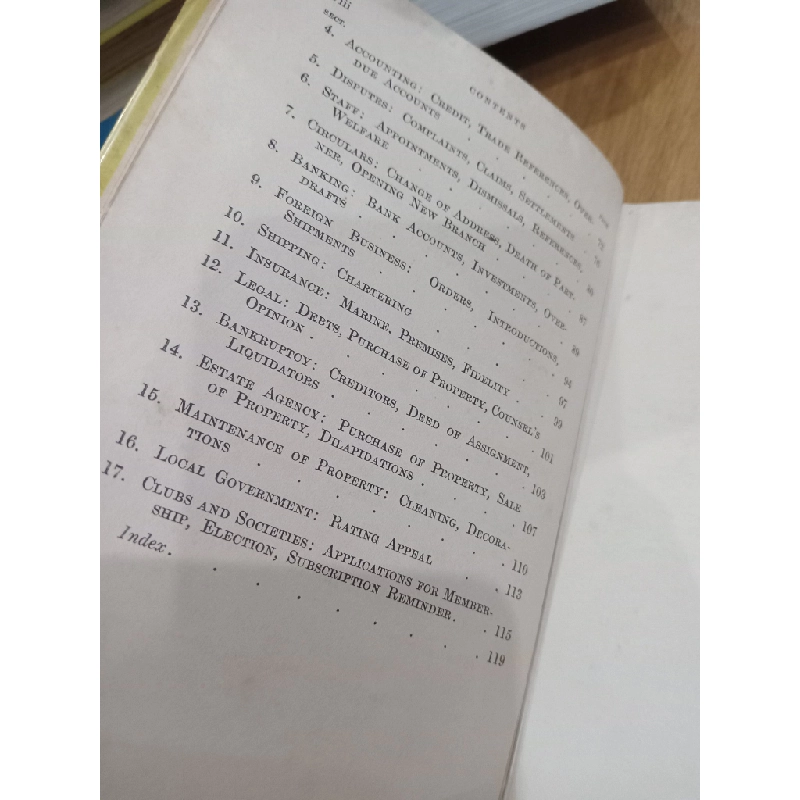 viii
CONTENTS
SECT.
4. ACCOUNTING: CREDIT, TRADE REFERENCES, OVER-
DUE ACCOUNTS
5. DISPUTES: COMPLAINTS, CLAIMS, SETTLEMENTS
6. STAFF: APPOINTMENTS, DISMISSALS, REFERENCES,
WELFARE
7. CIRCULARS: CHANGE OF ADDRESS, DEATH OF PART-
NER, OPENING NEW BRANCH
8. BANKING: BANK ACCOUNTS, INVESTMENTS, OVER-
DRAFTS 89
9. FOREIGN BUSINESS: ORDERS, INTRODUCTIONS,
SHIPMENTS 94
10. SHIPPING: CHARTERING 97
11. INSURANCE: MARINE, PREMISES, FIDELITY 99
12. LEGAL: DEBTS, PURCHASE OF PROPERTY, COUNSEL'S
OPINION 101
13. BANKRUPTCY: CREDITORS, DEED OF ASSIGNMENT,
LIQUIDATORS 103
14. ESTATE AGENCY: PURCHASE OF PROPERTY, SALE
OF PROPERTY, DILAPIDATIONS 107
15. MAINTENANCE OF PROPERTY: CLEANING, DECORA-
TIONS 110
16. LOCAL GOVERNMENT: RATING APPEAL 113
17. CLUBS AND SOCIETIES: APPLICATIONS FOR MEMBER-
SHIP, ELECTION, SUBSCRIPTION REMINDER. 115
Index. 119